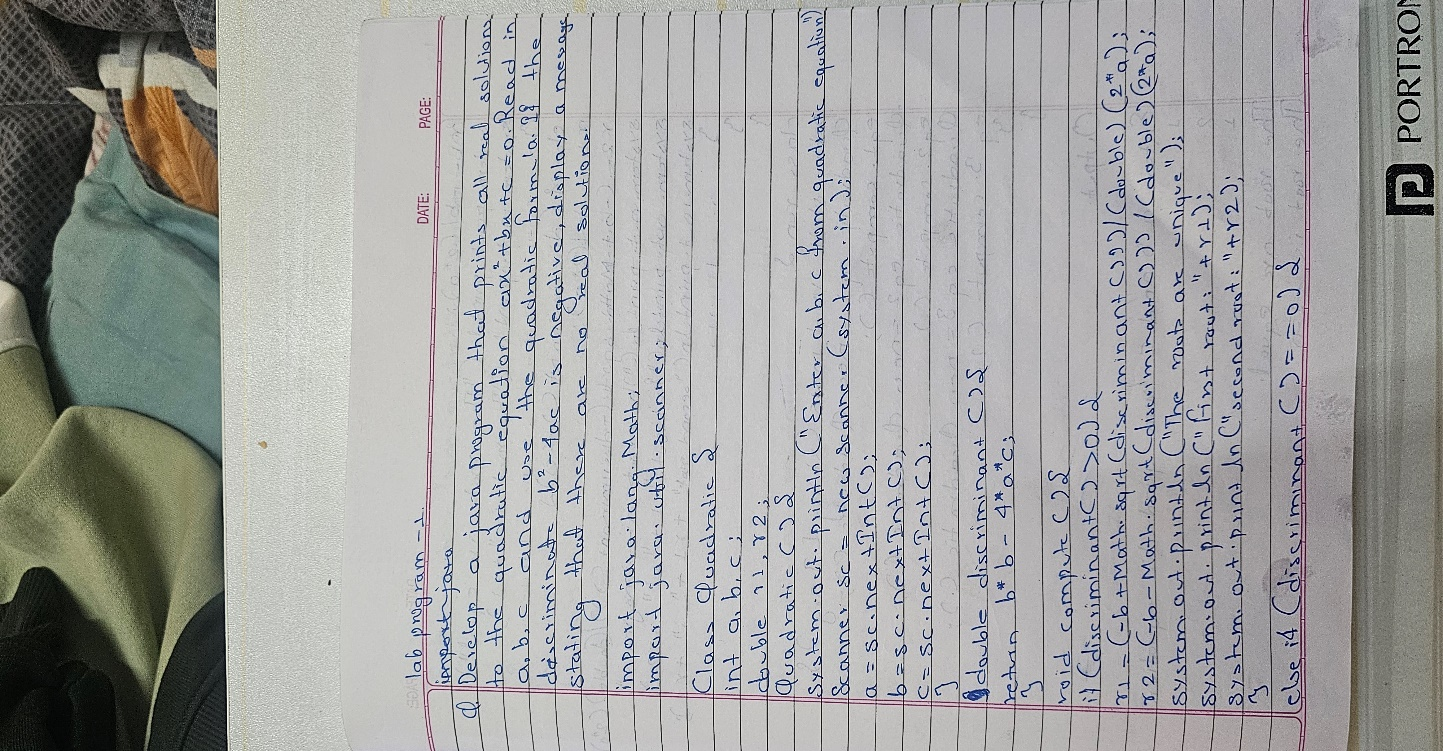 DATE: PAGE:
lab program - 1.
import java
Q Develop a java program that prints all real solutions
to the quadratic equation ax²+bx+c=0. Read in
a, b, c and use the quadratic formula. If the
discriminate b²-4ac is negative, display a message
stating that there are no real solutions.
import java.lang.Math;
import java.util.scanner;
Class Quadratic {
int a, b, c;
double r1, r2;
Quadratic () {
System.out.println ("Enter a, b, c from quadratic equation")
Scanner sc = new Scanner (system.in);
a = sc.nextInt();
b = sc.nextInt();
c = sc.nextInt();
}
double discriminant () {
return b*b - 4*a*c;
}
void compute () {
if (discriminant() > 0) {
r1 = (-b+Math.sqrt(discriminant()))/(double)(2*a);
r2 = (-b-Math.sqrt(discriminant()))/(double)(2*a);
System.out.println ("The roots are unique");
System.out.println ("first root: "+r1);
System.out.println ("second root: "+r2);
}
else if (discriminant () == 0) {
PORTRON